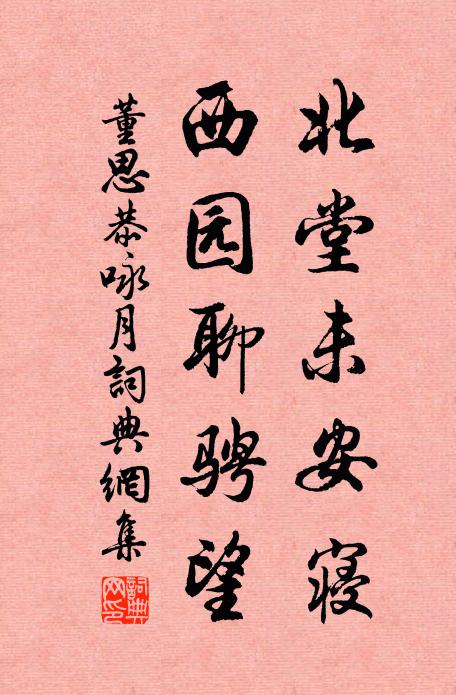 北堂未安寝
西园聊骋望
董思恭咏月詞典網集
詞典網印